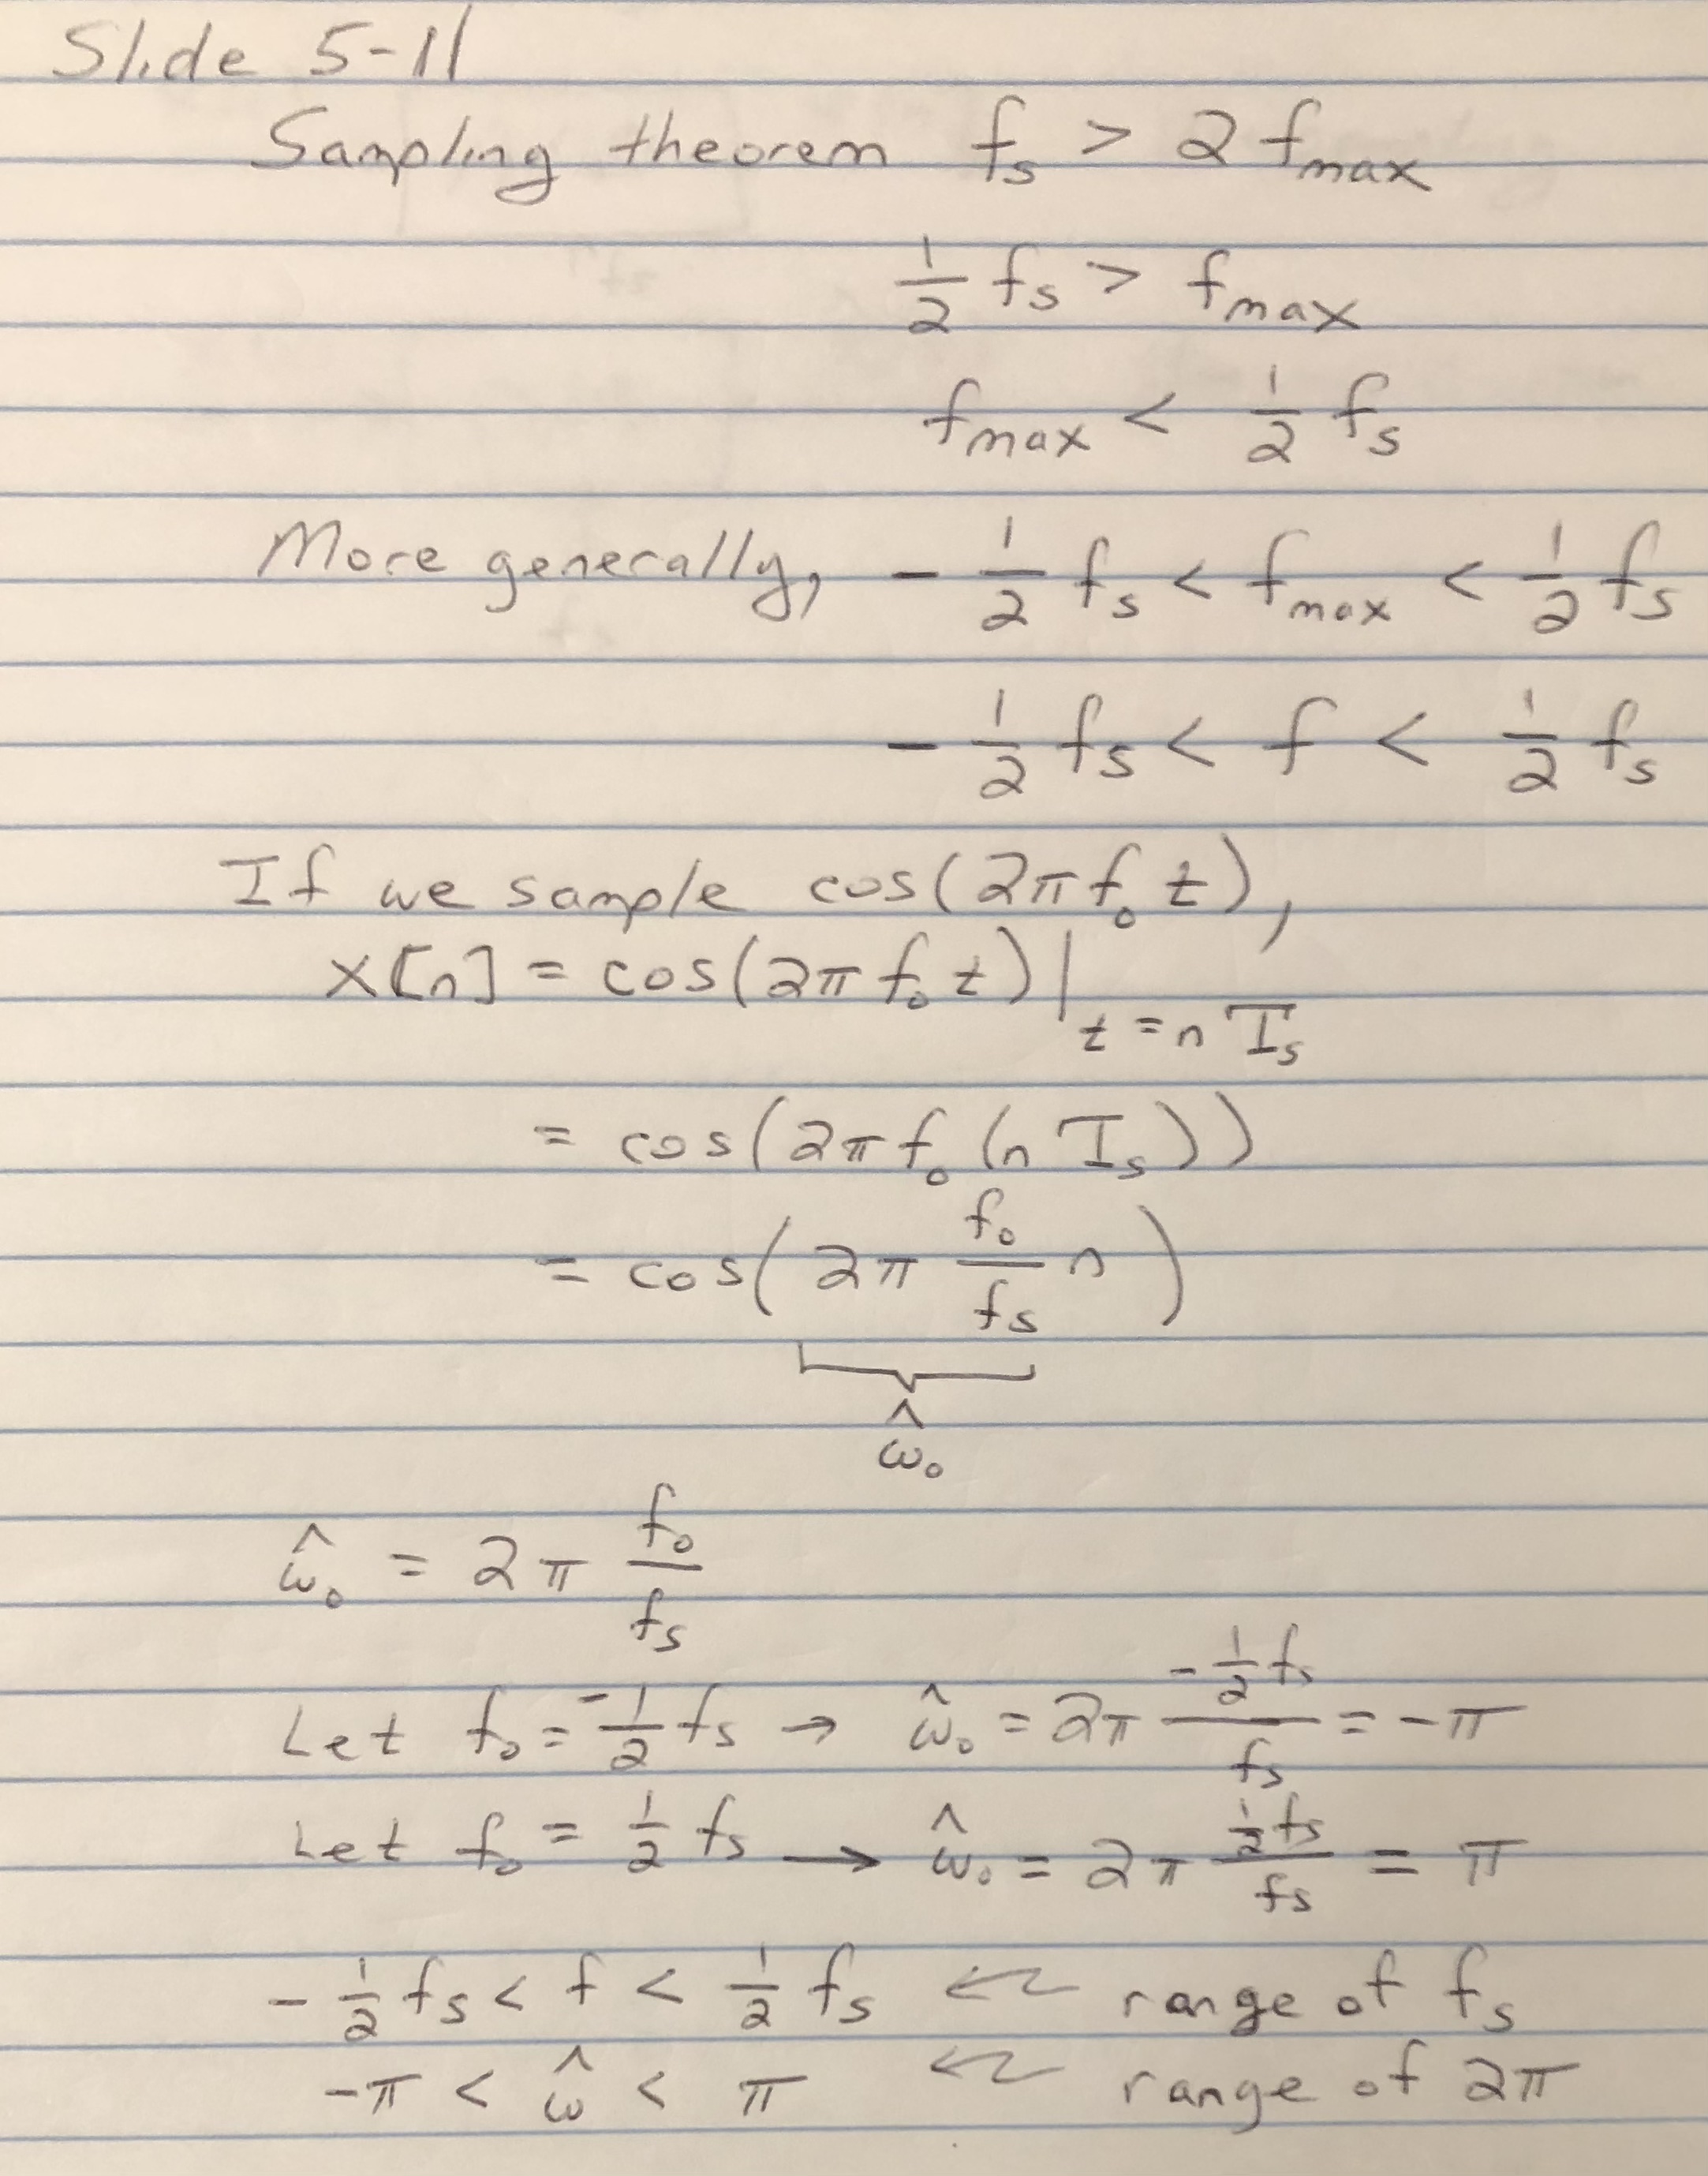 Slide 5-11
Sampling theorem f_s > 2 f_max
1/2 f_s > f_max
f_max < 1/2 f_s
More generally, - 1/2 f_s < f_max < 1/2 f_s
- 1/2 f_s < f < 1/2 f_s
If we sample cos(2π f_0 t),
x[n] = cos(2π f_0 t)|_{t = n T_s}
= cos(2π f_0 (n T_s))
= cos(2π f_0/f_s n)
ω̂_0
ω̂_0 = 2π f_0/f_s
Let f_0 = -1/2 f_s → ω̂_0 = 2π (-1/2 f_s)/f_s = -π
Let f_0 = 1/2 f_s → ω̂_0 = 2π (1/2 f_s)/f_s = π
- 1/2 f_s < f < 1/2 f_s ⇐ range of f_s
-π < ω̂ < π ⇐ range of 2π